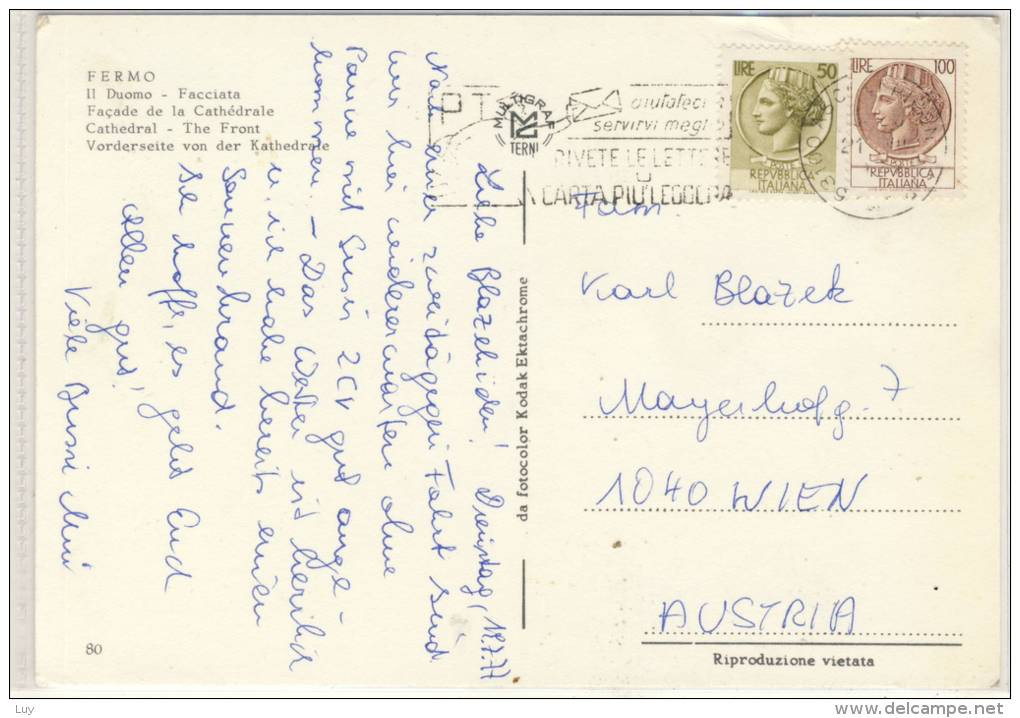 FERMO
Il Duomo - Facciata
Façade de la Cathédrale
Cathedral - The Front
Vorderseite von der Kathedrale
Liebe Blazekiden! Dienstag, 19.7.77
Nach einer zweitägigen Fahrt sind
wir hier wider erwarten ohne
Panne mit Susis 2CV gut ange-
kommen. - Das Wetter ist herrlich
u. ich habe bereits einen
Sonnenbrand.
Ich hoffe, es geht Euch
allen gut!
Viele Bussi Mimi
80
MULTIGRAF
TERNI
da fotocolor Kodak Ektachrome
PT
aiutateci a
servirvi megl
RIVETE LE LETTERE
U
CARTA PIU' LEGGERA
LIRE 50
POSTE
REPVBBLICA
ITALIANA
LIRE 100
POSTE
REPVBBLICA
ITALIANA
21
Fam
Karl Blazek
Mayerhofg. 7
1040 WIEN
AUSTRIA
Riproduzione vietata
Luy
www.delcampe.net